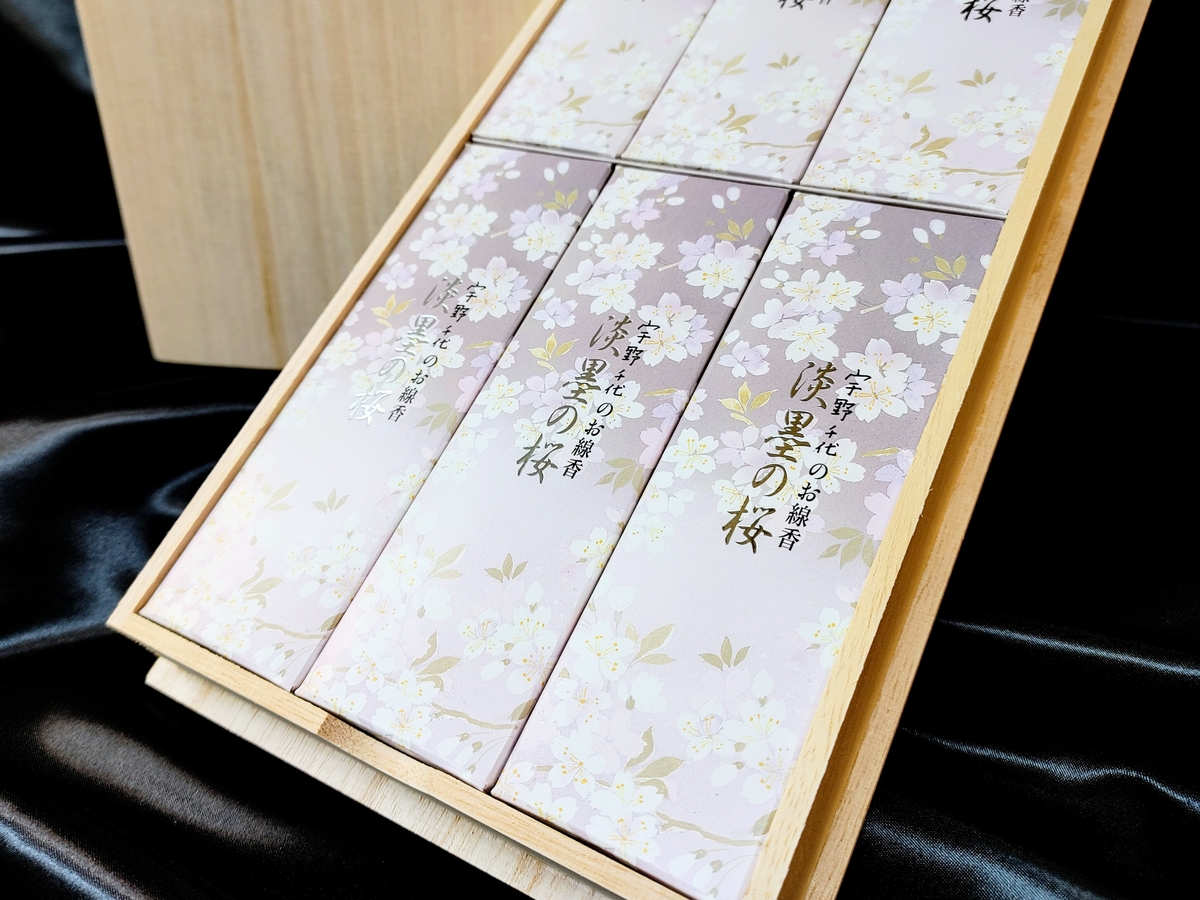 桜
香
桜
香
宇野千代のお線香
淡墨の桜
宇野千代のお線香
淡墨の桜
宇野千代のお線香
淡墨の桜